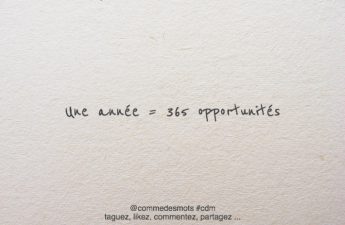 une année = 365 opportunités
@commedesmots #cdm
taguez, likez, commentez, partagez ...